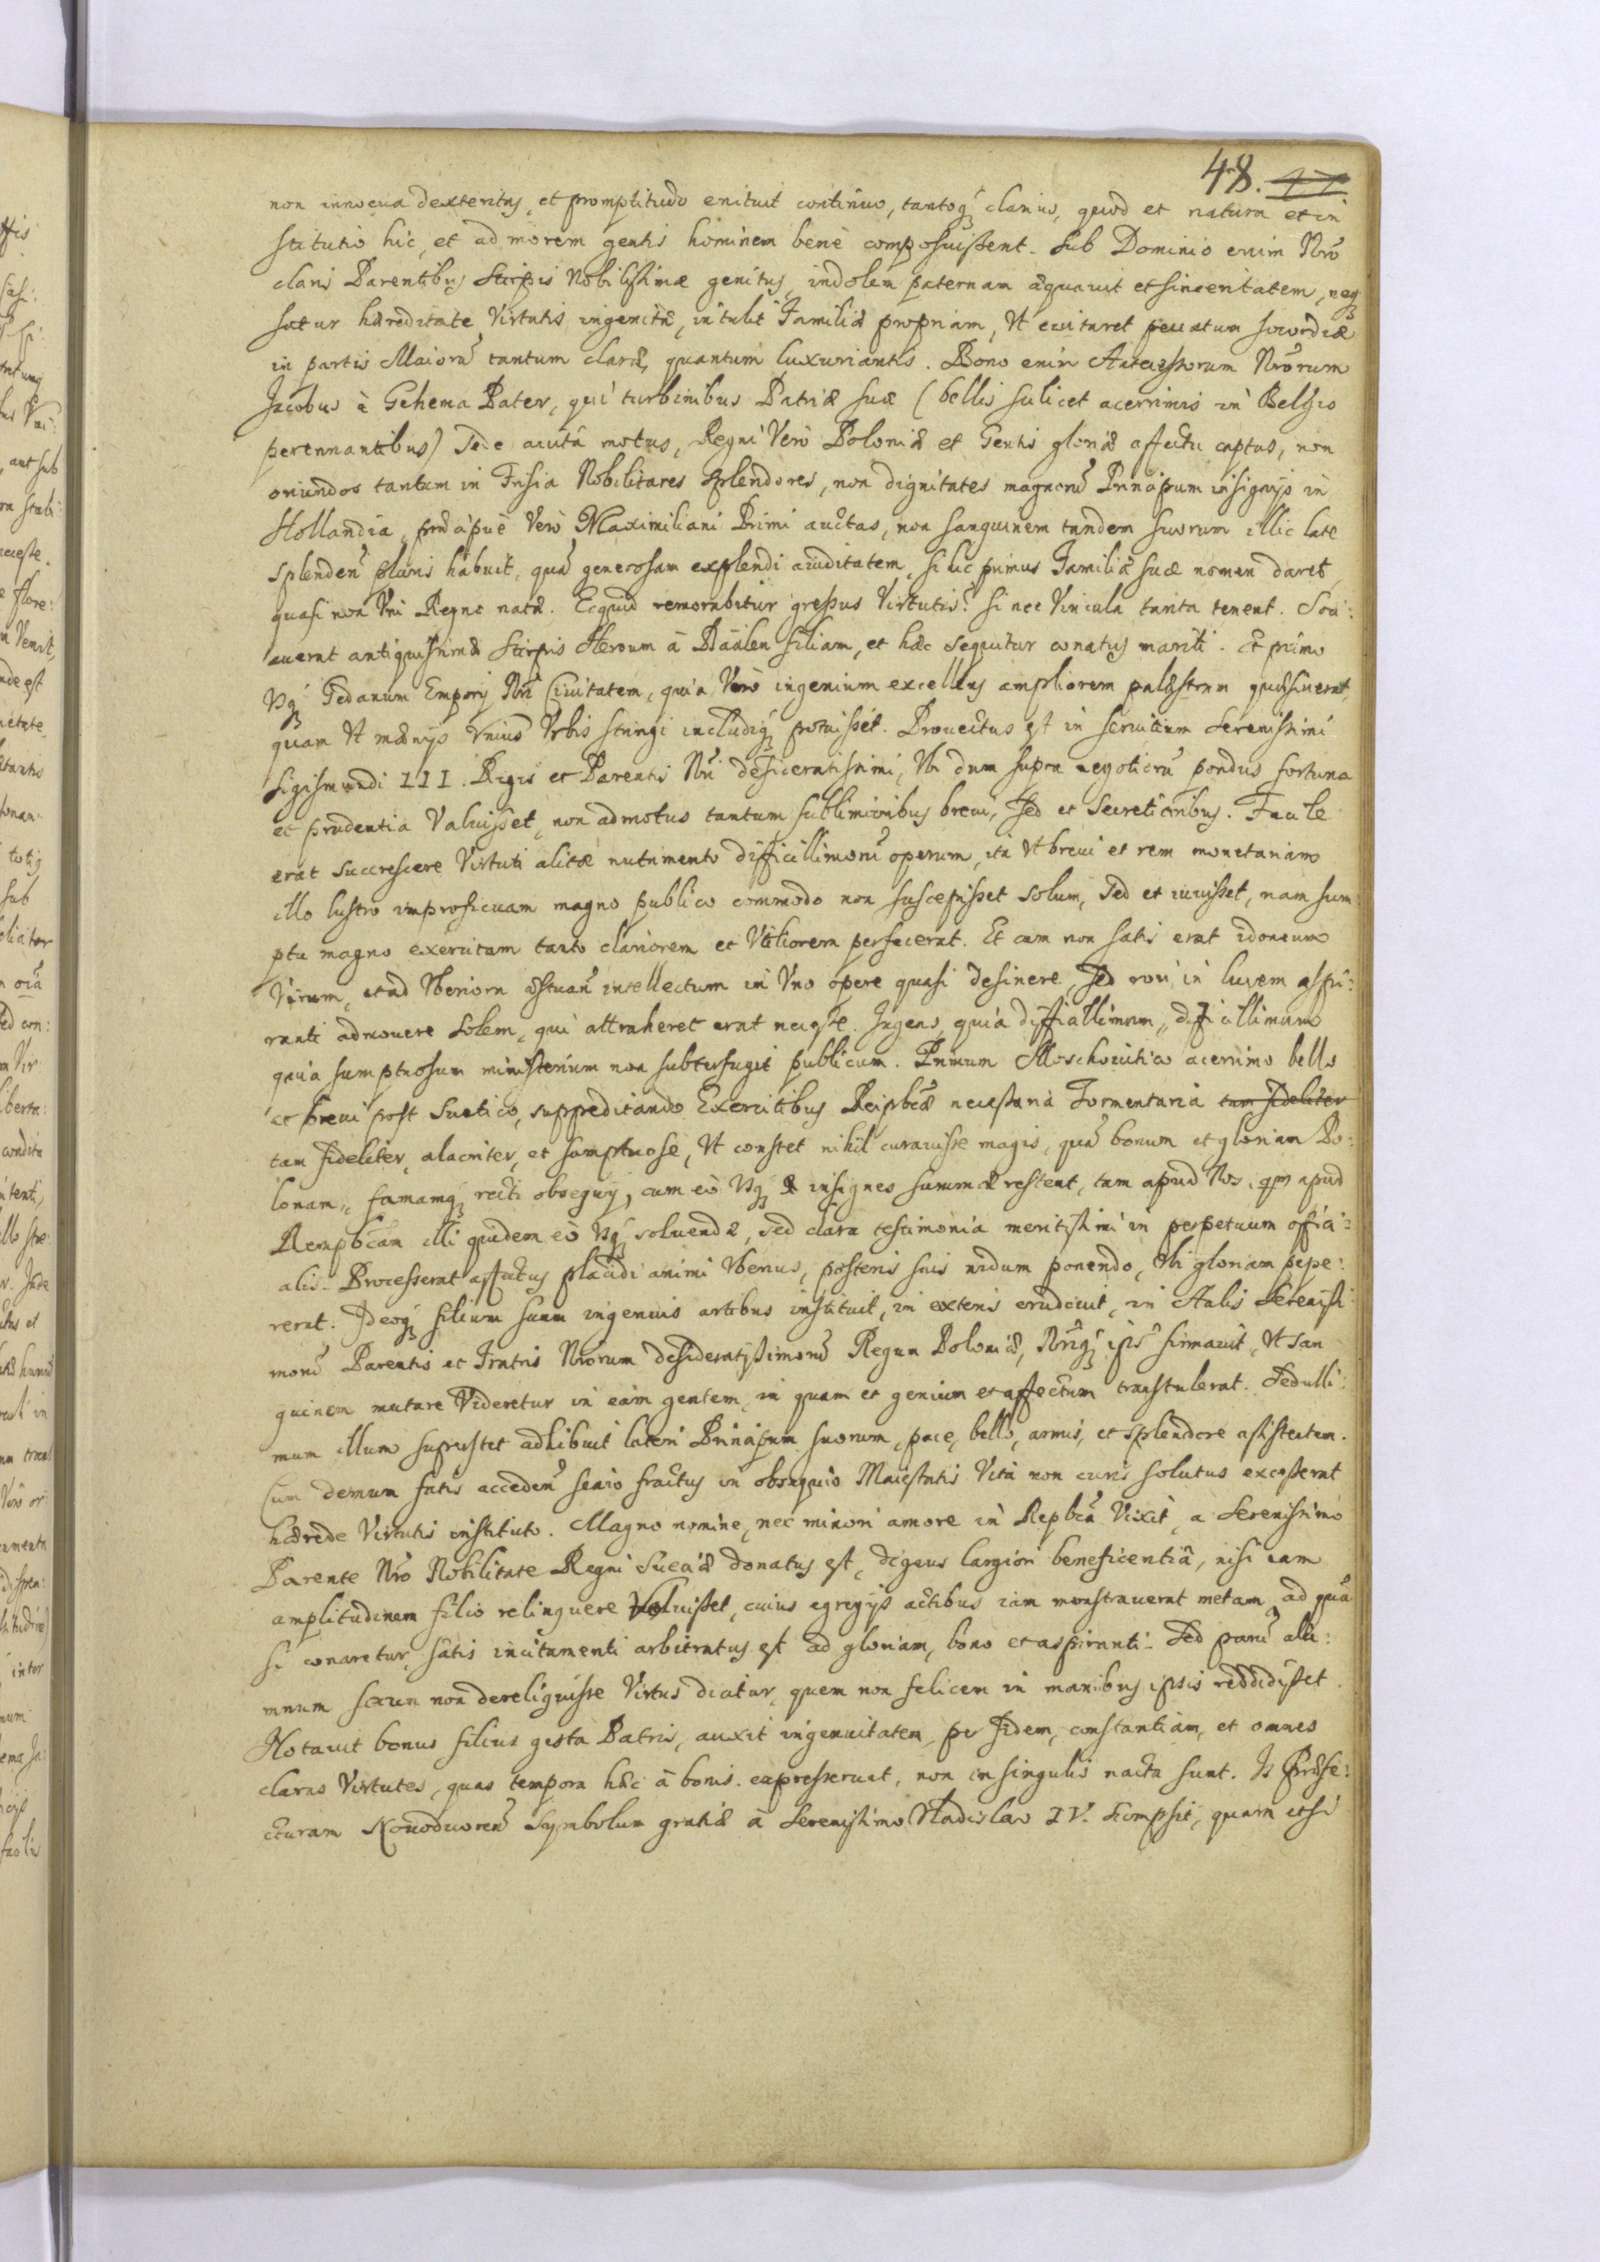 48. 47
non innocua dexteritas, et promptitudo enituit continuo, tantoq́ clarius, quod et natura et in
stitutio hic, et ad morem gentis hominem benè composuissent. Sub Dominio enim Nr̃o
claris Parentibus Stirpis Nobilissimæ genitus, indolem paternam æquauit et sinceritatem, neq́
satur hæreditate Virtutis ingenitæ, intulit Familiæ propriam, Vt euitaret peccatum socordiæ
in partis Maiorũ tantum claræ, quantum luxuriantis. Bono enim Antecessorum Nr̃orum
Jacobus à Gehema Pater, qui turbinibus Patriæ suæ (bellis scilicet acerrimis in Belgio
perennantibus) Sede auita motus, Regni Verò Poloniæ et Gentis gloriæ affectu captus, non
oriundos tantum in Frisia Nobilitares splendores, non dignitates magnorũ Principum insignijs in
Hollandia, præcipuè Verò Maximiliani Primi auctas, non sanguinem tandem suorum illic late
splendeñ pluris habuit, quã generosam explendi auiditatem, si hic primus Familiæ suæ nomen daret,
quasi non Vni Regno natæ. Ecquid remorabitur gressus Virtutis? si nec Vincula tanta tenent. Soci:
auerat antiquissimæ Stirpis Heroum à Baalen filiam, et hæc sequitur conatus mariti. Et primo
Vsq́ Gedanum Emporij Nr̃i Ciuitatem, quia Verò ingenium excellens ampliorem palæstram quæsiuerat,
quam Vt mænijs Vnius Vrbis stringi includiq́ potuisset. Prouectus est in seruitium Serenissimi
Sigismundi III. Regis et Parentis Nr̃i desideratissimi, Vbi dum supra negotiorũ pondus fortuna
et prudentia Valuisset, non admotus tantum sublimioribus breui, sed et Secretioribus. Facile
erat succrescere Virtuti alitæ nutrimento difficillimorũ operum, ita Vt breui et rem monetariam
illo lustro improficuam magno publico commodo non suscepisset solum, sed et iuuisset, nam sum
ptu magno exercitam tanto clariorem et Vtiliorem perfecerat. Et cum non satis erat idoneum
Virum, et ad Vberiora æstuañ intellectum in Vno opere quasi desinere, sed rori in lucem aspi:
ranti admouere Solem, qui attraheret erat necesse. Ingens, quia difficillimum, difficillimum
quia sumptuosum ministerium non subterfugit publicum. Primum Moschouitico acerrimo bello
et breui post Suetico, suppeditando Exercitibus Reipbcæ necessaria Tormentaria tam fideliter
tam fideliter, alacriter, et sumptuose, Vt constet nihil curauisse magis, quã bonum et gloriam Po:
lonam, famamq́ recti obsequij, cum eò Vsq́ & insignes summæ restent, tam apud Nos, qm apud
Rempbcam illi quidem eò Vsq́ soluendæ, sed clara testimonia meritissimi in perpetuum offici:
alis. Processerat affectus placidi animi Vberius, posteris suis nidum ponendo, Vbi gloriam pepe:
rerat. Ideoq́ filium suum ingenuis artibus instituit, in exteris erudiuit, in Aulis Serenissi
morũ Parentis et Fratris Nrorum desideratissimorũ Regum Poloniæ, Nr̃iq́ ipsĩ firmauit, Vt san
guinem mutare Videretur in eam gentem, in quam et genium et affectum transtulerat. Sedulli:
mum illum suppetet adhibuit lateri Principum suorum, pace, bello, armis, et splendore assistentem.
Cum demum fatis accedeñ senio fractus in obsequio Maiestatis Vita non curis solutus excesserat
hærede Virtutis instituto. Magno nomine, nec minori amore in Repbca Vixit, a Serenissimo
Parente Nr̃o Nobilitate Regni Sueciæ donatus est, dignus largiori beneficentiâ, nisi eam
amplitudinem filio relinquere Voluisset, cuius egregijs actibus iam monstrauerat metam, ad quã
si conaretur, satis incitamenti arbitratus est ad gloriam, bono et aspiranti. Sed parũ alu:
mnum suum non dereliquisse Virtus dicatur, quem non felicem in manibus ipsis reddidisset.
Notauit bonus filius gesta Patris, auxit ingenuitatem, per fidem, constantiam, et omnes
claras Virtutes, quas tempora hæc à bonis expresserunt, non in singulis nacta sunt. Is Præfe:
cturam Nouodworeñ Symbolum gratiæ à Serenissimo Vladislao IV. sumpsit, quam etsi